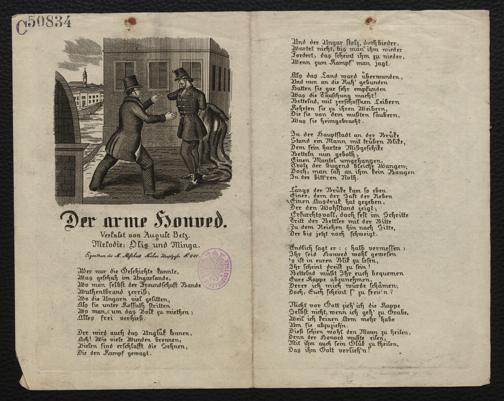 C50834
Der arme Honved.
Verfaßt von August Betz.
Melodie: Olis und Minga.
Wer nur die Geschichte kannte,
Was geschah im Ungarlande,
Wo man selbst der Freundschaft Bande
Wuthentbrannt zerriß;
Wo die Ungarn viel gelitten,
Als sie unter Kossuth stritten
Alles frei verhieß.
Der wird auch das Unglük kennen,
Ach! Wie viele Wunden brennen,
Diesen sind erschlafft die Sehnen,
Die den Kampf gewagt.
Und der Ungar stolz, doch bieder,
Wartet nicht, bis man ihn wieder
Fordert, das scheint ihm zu nieder,
Wenn zum Kampf man jagt.
Als das Land ward überwunden,
Und man an die Ruh' gebunden
Hatten sie gar sehr empfunden
Was die Täuschung macht!
Bettelnd, mit zerschoßnen Leibern
Kehrten sie zu ihren Weibern,
Die sie von dem wußten säubern,
Was sie heimgebracht.
In der Hauptstadt an der Brüke
Stund ein Mann mit trüben Blike,
Dem sein hartes Mißgeschike
Betteln nun geboth;
Einen Mantel umgehangen,
Trotz der Jugend bleiche Wangen,
Doch, man sah an ihm kein Bangen
In der bitt'ren Noth.
Längs der Brüke kam so eben
Einer, dem der Zahl der Reben
Einen Ausdruk hat gegeben,
Der den Wohlstand zeigt;
Ehrfurchtsvoll, doch fest im Schritte
Tritt der Bettler mit der Bitte
Zu dem Reichen hin nach Sitte,
Der bis jetzt noch schweigt.
Endlich sagt er halb vermessen:
Ihr seid Honved wohl gewesen
's ist in eurem Blik zu lesen,
Ihr scheint stolz zu sein!
Bettelnd müßt Ihr euch bequemen
Eure Kappe abzunehmen,
Derer ich mich würde schämen,
Doch, Euch scheint's zu freu'n!
Nicht vor Gott zieh' ich die Kappe
Selbst nicht, wenn ich geh' zu Grabe,
Weil ich keinen Arm mehr habe
Um sie abzuziehn.
Dieß schien wohl den Mann zu heilen,
Denn der Honved mußte eilen,
Mit ihm auch sein Glük zu theilen,
Das ihm Gott verlieh'n!